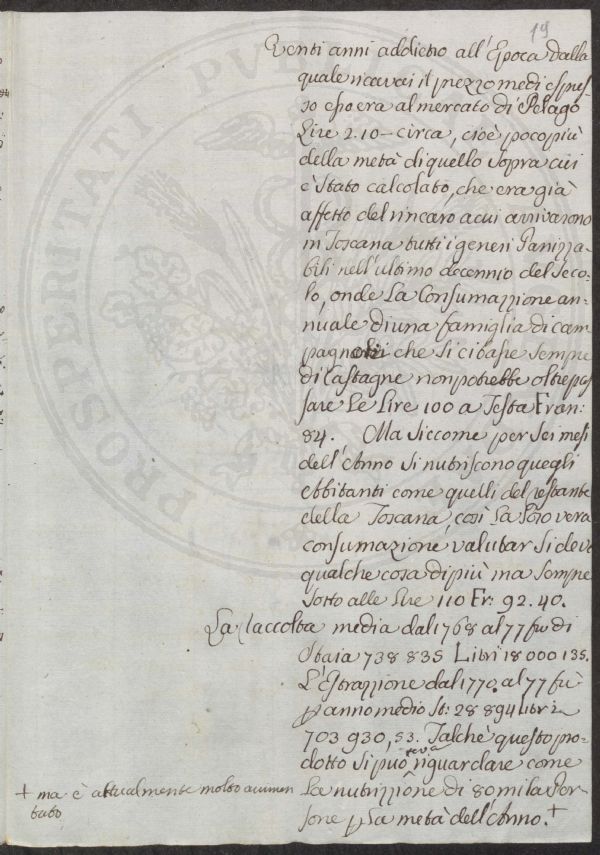 19
Venti anni addietro all'Epoca dalla
quale ricavai il prezzo medio espres=
so esso era al mercato di Pelago
Lire 2. 10 - circa, cioè poco più
della metà di quello sopra cui
è stato calcolato, che era già
affetto del rincaro a cui arrivarono
in Toscana tutti i generi Panizza=
bili nell'ultimo decennio del Seco=
lo, onde La Consumazzione an=
nuale di una famiglia di cam
pagnoli che si cibasse sempre
di Castagne non potrebbe oltrepas
sare Le Lire 100 a Testa Fran:
84. Ma siccome per sei mesi
dell'Anno si nutriscono quegli
Abbitanti come quelli del restante
della Toscana, così La Loro vera
consumazione valutar si deve
qualche cosa di più ma sempre
sotto alle Lire 110 Fr: 92. 40.
La Raccolta media dal 1768 al 77 fu di
Staia 738 835 Libri 18 000 135.
L'Estrazzione dal 1770. al 77 fù
p anno medio St: 28 894 Libri
703 930, 53. Talchè questo pro=
dotto si può riguardare come
teva
La nutrizzione di 80 mila Per=
sone p La metà dell'Anno. +
+ ma è attualmente molto aumen
tato
PROSPERITATI PVBL